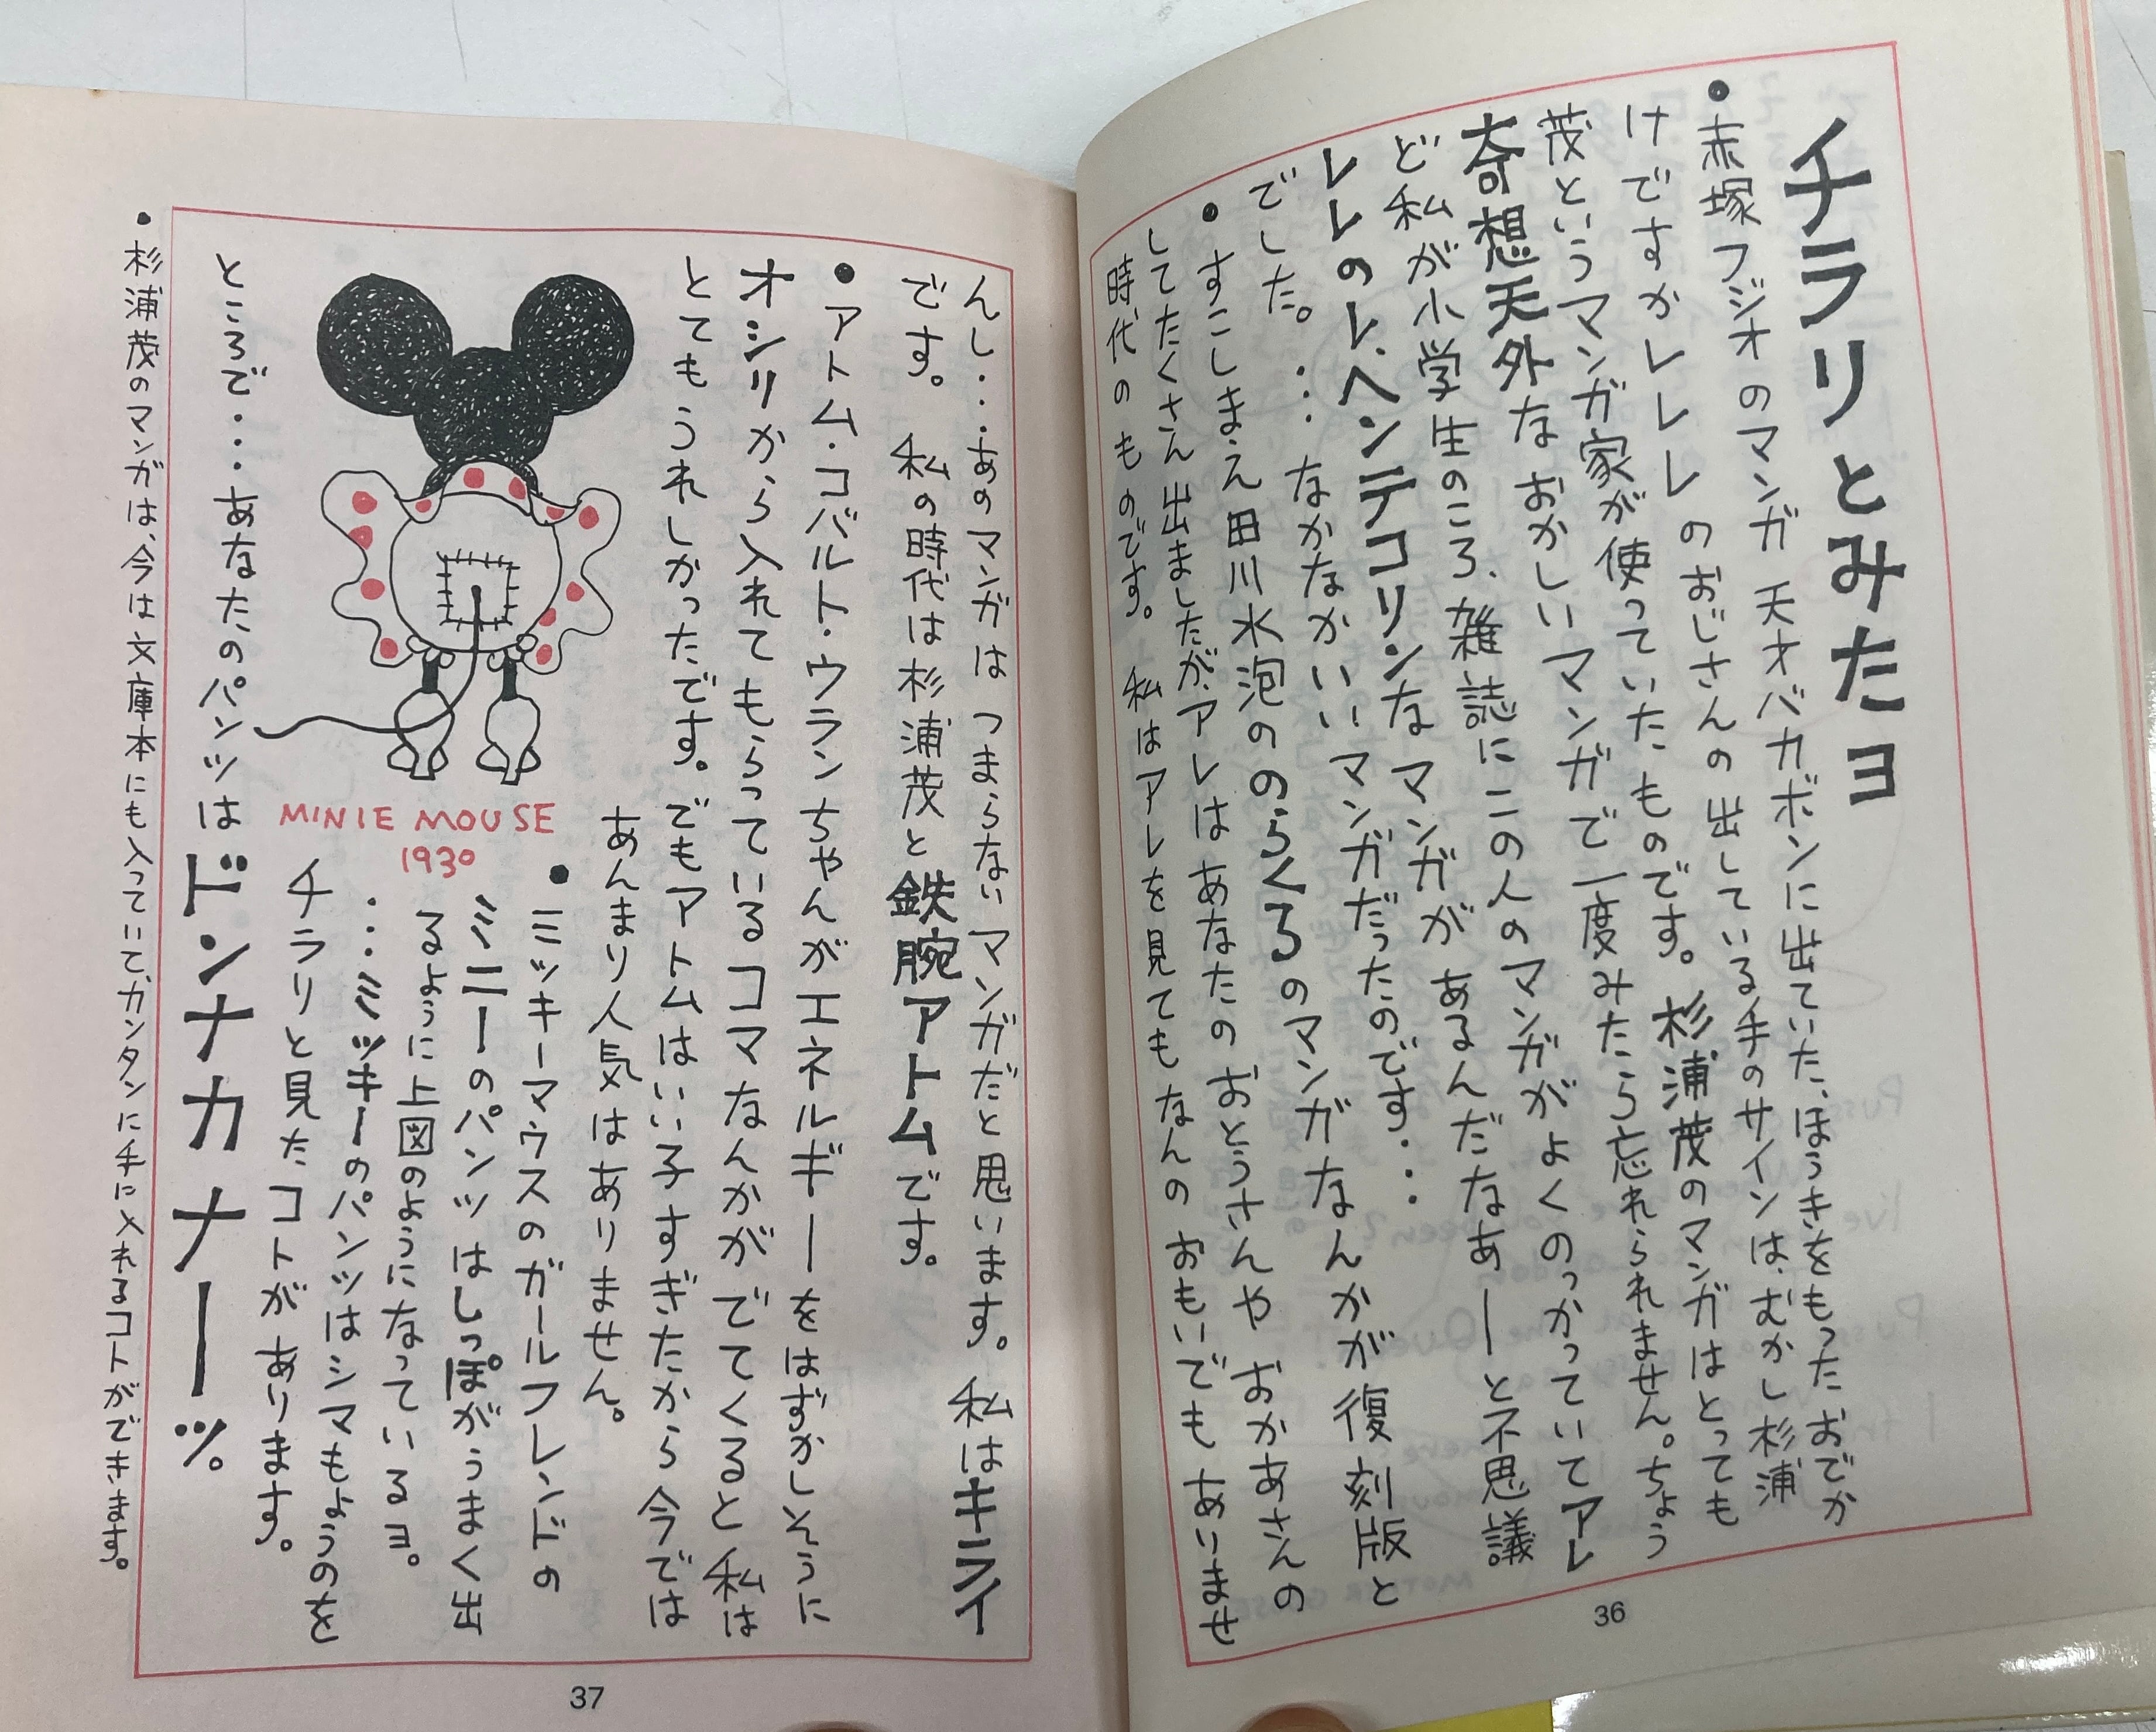 チラリとみたヨ
●赤塚フジオのマンガ 天才バカボンに出ていた、ほうきをもったおでか
けですかレレレのおじさんの出している手のサインは、むかし杉浦
茂というマンガ家が使っていたものです。杉浦茂のマンガはとっても
奇想天外なおかしいマンガで一度みたら忘れられません。ちょう
ど私が小学生のころ、雑誌にこの人のマンガがよくのっかっていてアレ
レレのレ、ヘンテコリンなマンガがあるんだなあーと不思議
でした。…なかなかいいマンガだったのです…
●すこしまえ田川水泡ののらくろのマンガなんかが復刻版と
してたくさん出ましたが、アレはあなたのおとうさんやおかあさんの
時代のものです。私はアレを見てもなんのおもいでもありませ
36
んし…あのマンガはつまらないマンガだと思います。私はキライ
です。私の時代は杉浦茂と鉄腕アトムです。
●アトム・コバルト・ウランちゃんがエネルギーをはずかしそうに
オシリから入れてもらっているコマなんかがでてくると私は
とてもうれしかったです。でもアトムはいい子すぎたから今では
あんまり人気はありません。
●ミッキーマウスのガールフレンドの
ミニーのパンツはしっぽがうまく出
るように上図のようになっているヨ。
…ミッキーのパンツはシマもようのを
チラリと見たコトがあります。
MINIE MOUSE
1930
ところで…あなたのパンツはドンナカナーッ。
●杉浦茂のマンガは、今は文庫本にも入っていて、カンタンに手に入れるコトができます。
37